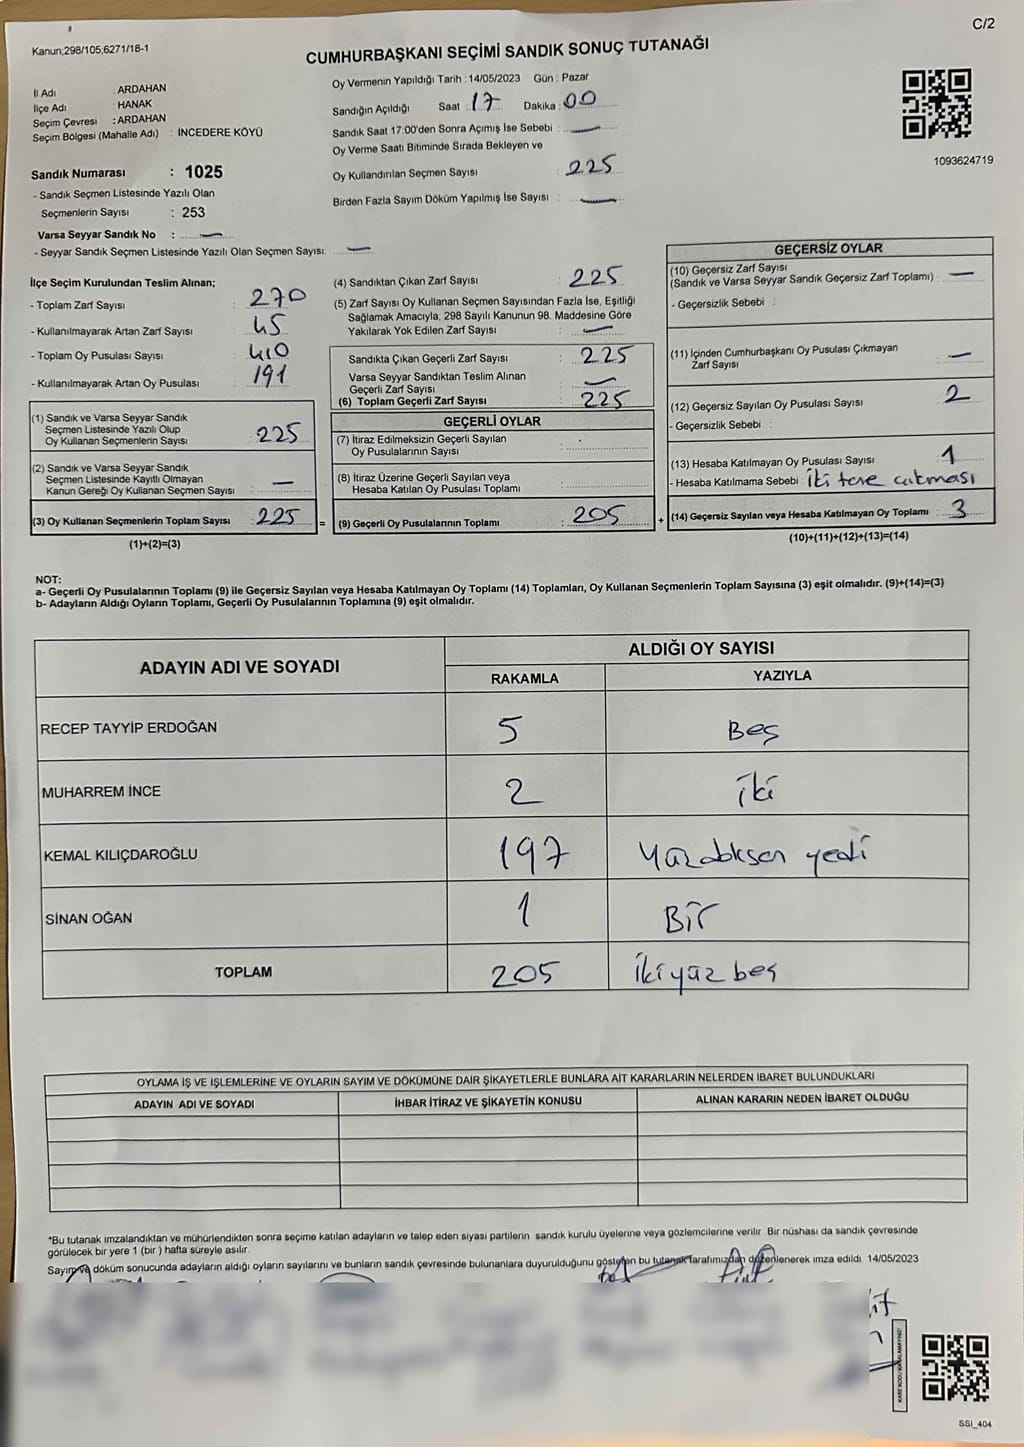 C/2
Kanun;298/105;6271/18-1
CUMHURBAŞKANI SEÇİMİ SANDIK SONUÇ TUTANAĞI
İl Adı : ARDAHAN
İlçe Adı : HANAK
Seçim Çevresi : ARDAHAN
Seçim Bölgesi (Mahalle Adı) : İNCEDERE KÖYÜ
Oy Vermenin Yapıldığı Tarih : 14/05/2023 Gün : Pazar
Sandığın Açıldığı Saat : 17 Dakika : 00
Sandık Saat 17:00'den Sonra Açımış İse Sebebi : —
Oy Verme Saati Bitiminde Sırada Bekleyen ve
Oy Kullandırılan Seçmen Sayısı : 225
Birden Fazla Sayım Döküm Yapılmış İse Sayısı : —
1093624719
Sandık Numarası : 1025
- Sandık Seçmen Listesinde Yazılı Olan
Seçmenlerin Sayısı : 253
Varsa Seyyar Sandık No : —
- Seyyar Sandık Seçmen Listesinde Yazılı Olan Seçmen Sayısı: —
İlçe Seçim Kurulundan Teslim Alınan;
- Toplam Zarf Sayısı : 270
- Kullanılmayarak Artan Zarf Sayısı : 45
- Toplam Oy Pusulası Sayısı : 410
- Kullanılmayarak Artan Oy Pusulası : 191
(1) Sandık ve Varsa Seyyar Sandık
Seçmen Listesinde Yazılı Olup
Oy Kullanan Seçmenlerin Sayısı : 225
(2) Sandık ve Varsa Seyyar Sandık
Seçmen Listesinde Kayıtlı Olmayan
Kanun Gereği Oy Kullanan Seçmen Sayısı : —
(3) Oy Kullanan Seçmenlerin Toplam Sayısı : 225 =
(1)+(2)=(3)
(4) Sandıktan Çıkan Zarf Sayısı : 225
(5) Zarf Sayısı Oy Kullanan Seçmen Sayısından Fazla İse, Eşitliği
Sağlamak Amacıyla, 298 Sayılı Kanunun 98. Maddesine Göre
Yakılarak Yok Edilen Zarf Sayısı : —
Sandıkta Çıkan Geçerli Zarf Sayısı : 225
Varsa Seyyar Sandıktan Teslim Alınan
Geçerli Zarf Sayısı : —
(6) Toplam Geçerli Zarf Sayısı : 225
GEÇERLİ OYLAR
(7) İtiraz Edilmeksizin Geçerli Sayılan
Oy Pusulalarının Sayısı :
(8) İtiraz Üzerine Geçerli Sayılan veya
Hesaba Katılan Oy Pusulası Toplamı :
(9) Geçerli Oy Pusulalarının Toplamı : 205 +
GEÇERSİZ OYLAR
(10) Geçersiz Zarf Sayısı
(Sandık ve Varsa Seyyar Sandık Geçersiz Zarf Toplamı) : —
- Geçersizlik Sebebi :
(11) İçinden Cumhurbaşkanı Oy Pusulası Çıkmayan
Zarf Sayısı : —
(12) Geçersiz Sayılan Oy Pusulası Sayısı : 2
- Geçersizlik Sebebi :
(13) Hesaba Katılmayan Oy Pusulası Sayısı : 1
- Hesaba Katılmama Sebebi : İki tere çıkması
(14) Geçersiz Sayılan veya Hesaba Katılmayan Oy Toplamı : 3
(10)+(11)+(12)+(13)=(14)
NOT:
a- Geçerli Oy Pusulalarının Toplamı (9) ile Geçersiz Sayılan veya Hesaba Katılmayan Oy Toplamı (14) Toplamları, Oy Kullanan Seçmenlerin Toplam Sayısına (3) eşit olmalıdır. (9)+(14)=(3)
b- Adayların Aldığı Oyların Toplamı, Geçerli Oy Pusulalarının Toplamına (9) eşit olmalıdır.
ADAYIN ADI VE SOYADI ALDIĞI OY SAYISI
RAKAMLA YAZIYLA
RECEP TAYYİP ERDOĞAN 5 Beş
MUHARREM İNCE 2 İki
KEMAL KILIÇDAROĞLU 197 Yüzdoksan yedi
SİNAN OĞAN 1 Bir
TOPLAM 205 İkiyüz beş
OYLAMA İŞ VE İŞLEMLERİNE VE OYLARIN SAYIM VE DÖKÜMÜNE DAİR ŞİKAYETLERLE BUNLARA AİT KARARLARIN NELERDEN İBARET BULUNDUKLARI
ADAYIN ADI VE SOYADI İHBAR İTİRAZ VE ŞİKAYETİN KONUSU ALINAN KARARIN NEDEN İBARET OLDUĞU
*Bu tutanak imzalandıktan ve mühürlendikten sonra seçime katılan adayların ve talep eden siyasi partilerin sandık kurulu üyelerine veya gözlemcilerine verilir. Bir nüshası da sandık çevresinde
görülecek bir yere 1 (bir ) hafta süreyle asılır.
Sayım ve döküm sonucunda adayların aldığı oyların sayılarını ve bunların sandık çevresinde bulunanlara duyurulduğunu gösteren bu tutanak tarafımızdan düzenlenerek imza edildi. 14/05/2023
KARE KODU KARALAMAYINIZ!
SSI_404